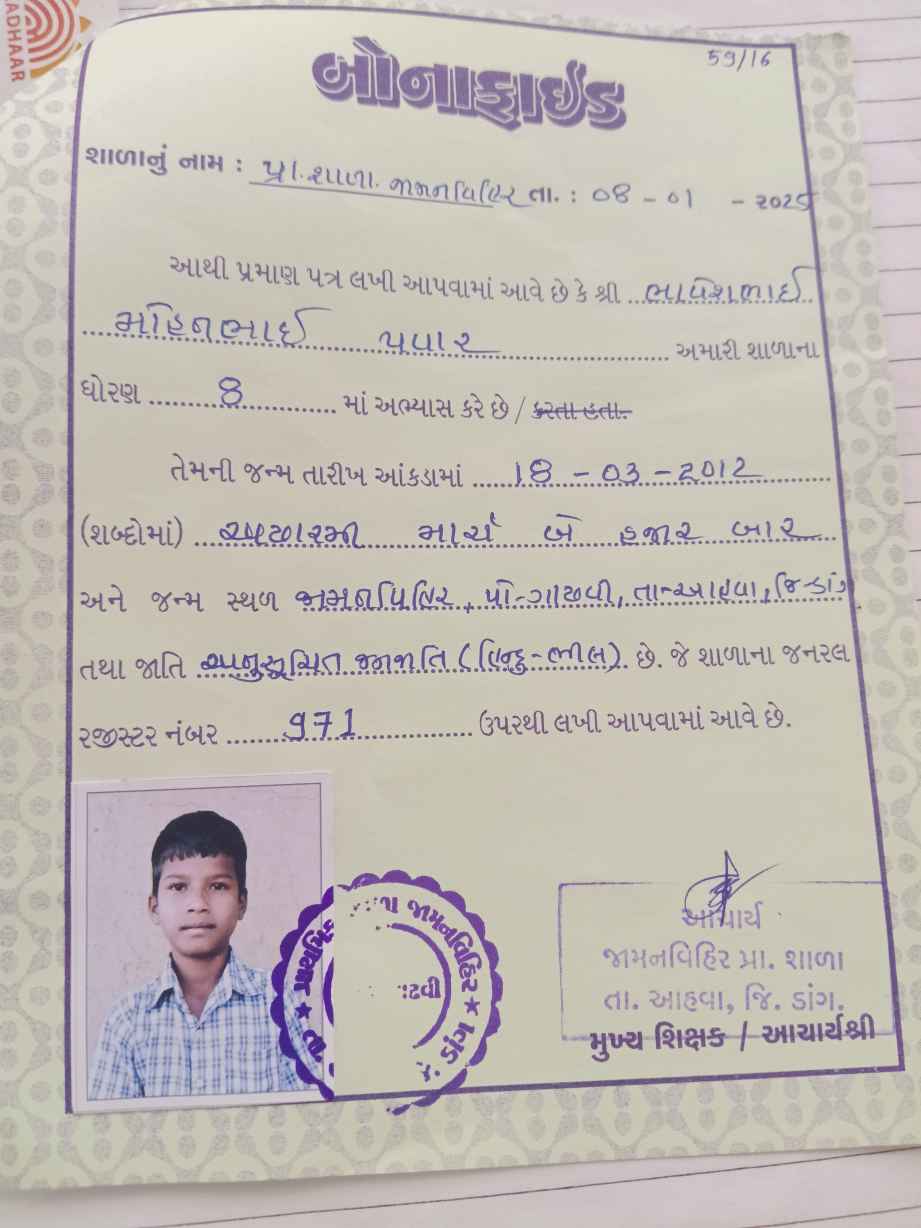 AADHAAR
બોનાફાઈડ
59/16
શાળાનું નામ : પ્રા. શાળા. જામનવિહિર તા. : ૦૪ - ૦૧ - ૨૦૨૬
આથી પ્રમાણ પત્ર લખી આપવામાં આવે છે કે શ્રી ભાવેશભાઈ
મોહનભાઈ પવાર અમારી શાળાના
ધોરણ 8 માં અભ્યાસ કરે છે / કરતા હતા.
તેમની જન્મ તારીખ આંકડામાં 18 - 03 - 2012
(શબ્દોમાં) અઢારમી માર્ચ બે હજાર બાર
અને જન્મ સ્થળ જામનવિહિર, પો-ગાઢવી, તા-આહવા, જિ-ડાંગ
તથા જાતિ અનુસૂચિત જનજાતિ (હિન્દુ-ભીલ). છે. જે શાળાના જનરલ
રજીસ્ટર નંબર 971 ઉપરથી લખી આપવામાં આવે છે.
જામનવિહિર ★ ડાંગ
આચાર્ય
જામનવિહિર પ્રા. શાળા
તા. આહવા, જિ. ડાંગ.
મુખ્ય શિક્ષક / આચાર્યશ્રી